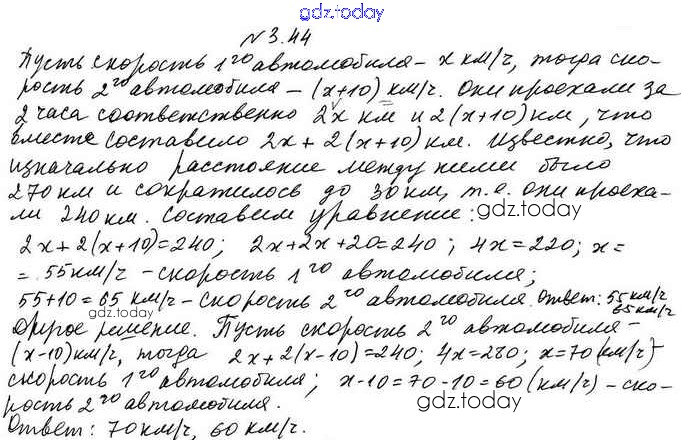 gdz.today
№3.44
Пусть скорость 1го автомобиля – x км/ч, тогда ско-
рость 2го автомобиля – (x+10) км/ч. Они проехали за
2 часа соответственно 2x км и 2(x+10) км, что
вместе составило 2x + 2(x+10) км. Известно, что
изначально расстояние между ними было
270 км и сократилось до 30 км, т.е. они проеха-
ли 240 км. Составим уравнение:
gdz.today
2x+2(x+10)=240; 2x+2x+20=240; 4x=220; x=
= 55 км/ч – скорость 1го автомобиля;
55+10=65 км/ч – скорость 2го автомобиля. Ответ: 55 км/ч
65 км/ч
gdz.today
Другое решение. Пусть скорость 2го автомобиля –
(x-10) км/ч, тогда 2x+2(x-10)=240; 4x=280; x=70 (км/ч) –
скорость 1го автомобиля; x-10=70-10=60 (км/ч) – ско-
рость 2го автомобиля.
gdz.today
Ответ: 70 км/ч, 60 км/ч.